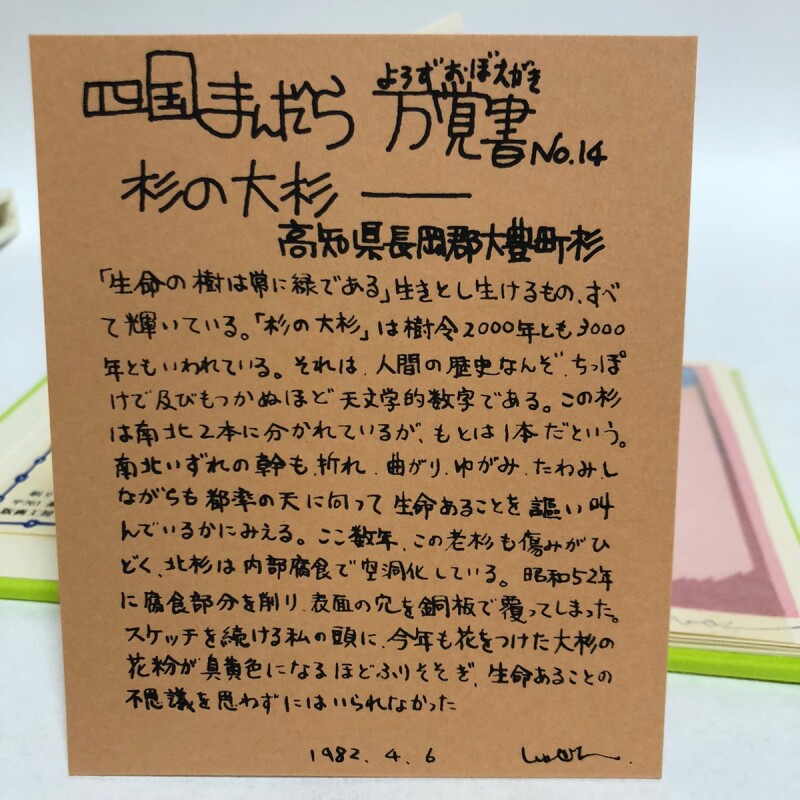 四国まんだら
よろずおぼえがき
万覚書 No.14
杉の大杉 ——
高知県長岡郡大豊町杉
「生命の樹は常に緑である」生きとし生けるもの、すべ
て輝いている。「杉の大杉」は樹令2000年とも3000
年ともいわれている。それは、人間の歴史なんぞ、ちっぽ
けで及びもつかぬほど天文学的数字である。この杉
は南北2本に分かれているが、もとは1本だという。
南北いずれの幹も、折れ、曲がり、ゆがみ、たわみし
ながらも都率の天に向って生命あることを謳い叫
んでいるかにみえる。ここ数年、この老杉も傷みがひ
どく、北杉は内部腐食で空洞化している。昭和52年
に腐食部分を削り、表面の穴を銅板で覆ってしまった。
スケッチを続ける私の頭に、今年も花をつけた大杉の
花粉が真黄色になるほどふりそそぎ、生命あることの
不思議を思わずにはいられなかった
1982.4.6